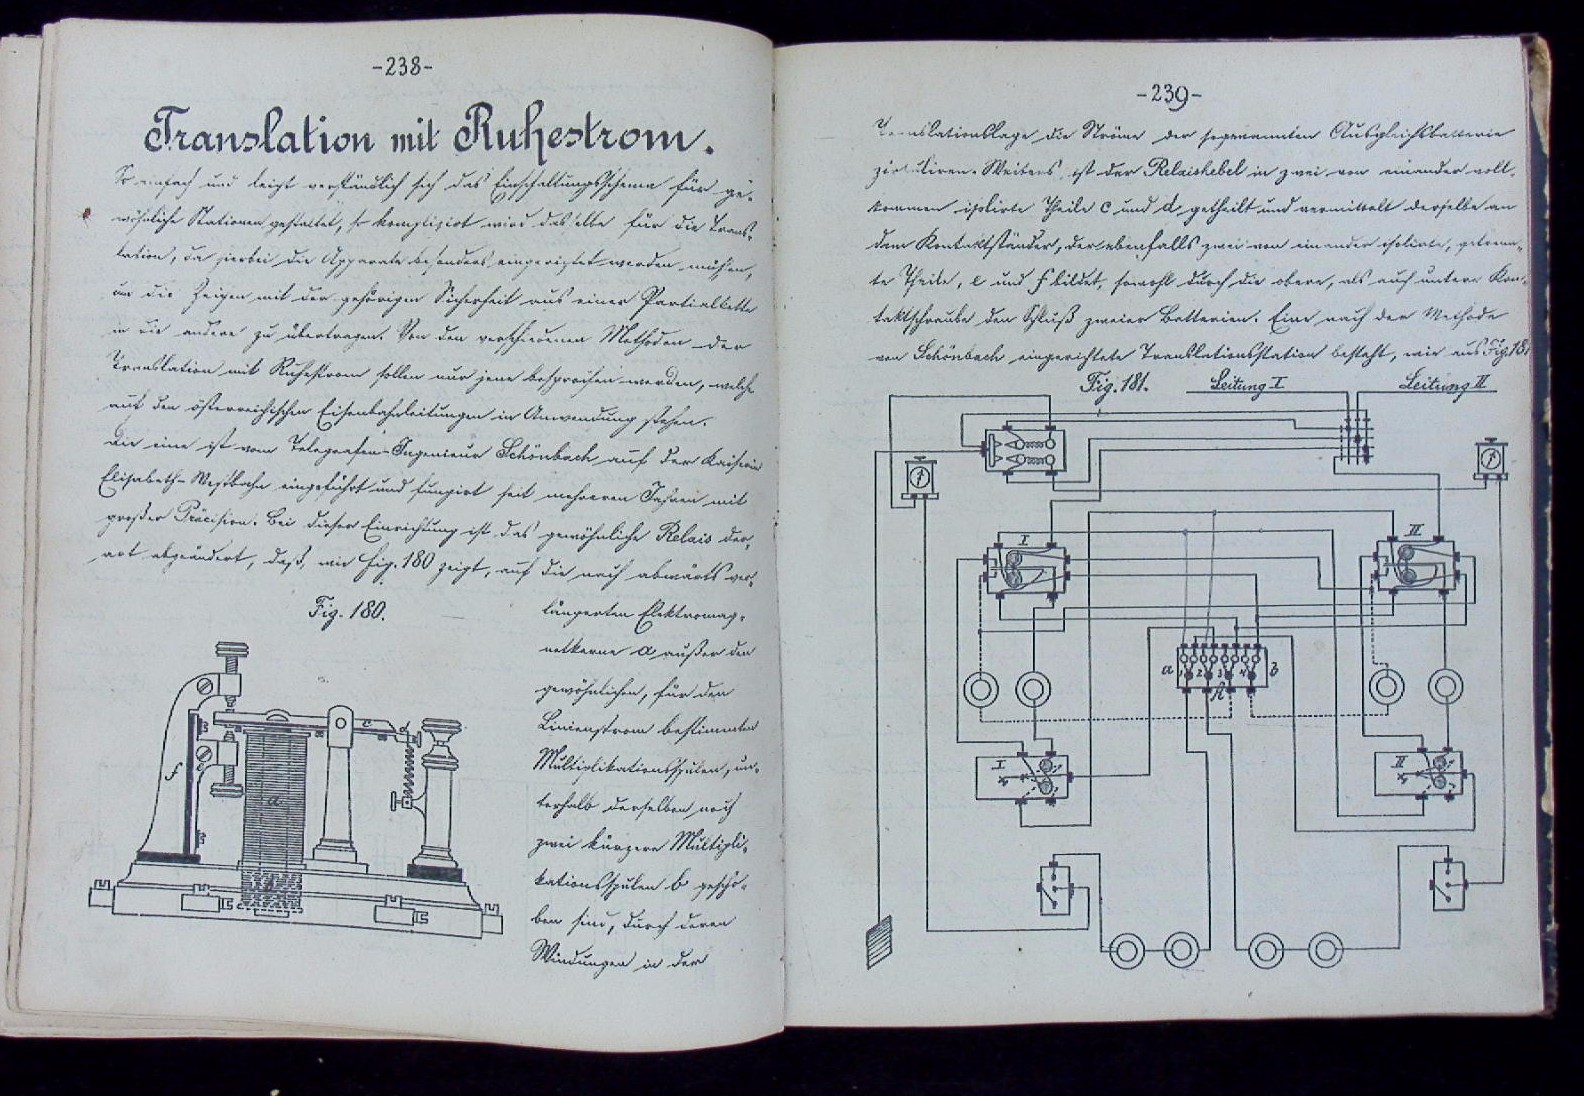 -238-
Translation mit Ruhestrom.
So einfach und leicht verständlich sich das Einschaltungsschema für ge-
wöhnliche Stationen gestaltet, so komplizirt wird dasselbe für die Trans-
lation, da hierbei die Apparate besonders eingerichtet werden müssen,
um die Zeichen mit der gehörigen Sicherheit aus einer Partialkette
in die andere zu übertragen. Von den verschiedenen Methoden der
Translation mit Ruhestrom sollen nur jene besprochen werden, welche
auf den österreichischen Eisenbahnleitungen in Anwendung stehen.
Die eine ist vom Telegrafen-Ingenieur Schönbach auf der Kaiserin
Elisabeth-Westbahn eingeführt und fungirt seit mehreren Jahren mit
großer Präcision. Bei dieser Einrichtung ist das gewöhnliche Relais der-
art abgeändert, daß, wie Fig. 180 zeigt, auf die nach abwärts ver-
Fig. 180.
längerten Elektromag-
netkerne a außer den
gewöhnlichen, für den
Linienstrom bestimmten
Multiplikationsspulen, un-
terhalb derselben noch
zwei kürzere Multipli-
kationsspulen b gescho-
ben sind, durch deren
Windungen in der
c
f
e
a
-239-
Translationslage die Ströme der sogenannten Ausgleichsbatterie
zirkuliren. Weiters ist der Relaishebel in zwei von einander voll-
kommen isolirte Theile c und d getheilt und vermittelt derselbe an
dem Kontaktständer, der ebenfalls zwei von einander isolirte, getrenn-
te Theile, e und f bildet, sowohl durch die obere, als auch untere Kon-
taktschraube den Schluß zweier Batterien. Eine nach der Methode
von Schönbach eingerichtete Translationsstation besteht, wie aus Fig. 181
Fig. 181.
Leitung I
Leitung II
I
II
a
1 2 3 4
b
A
I
II